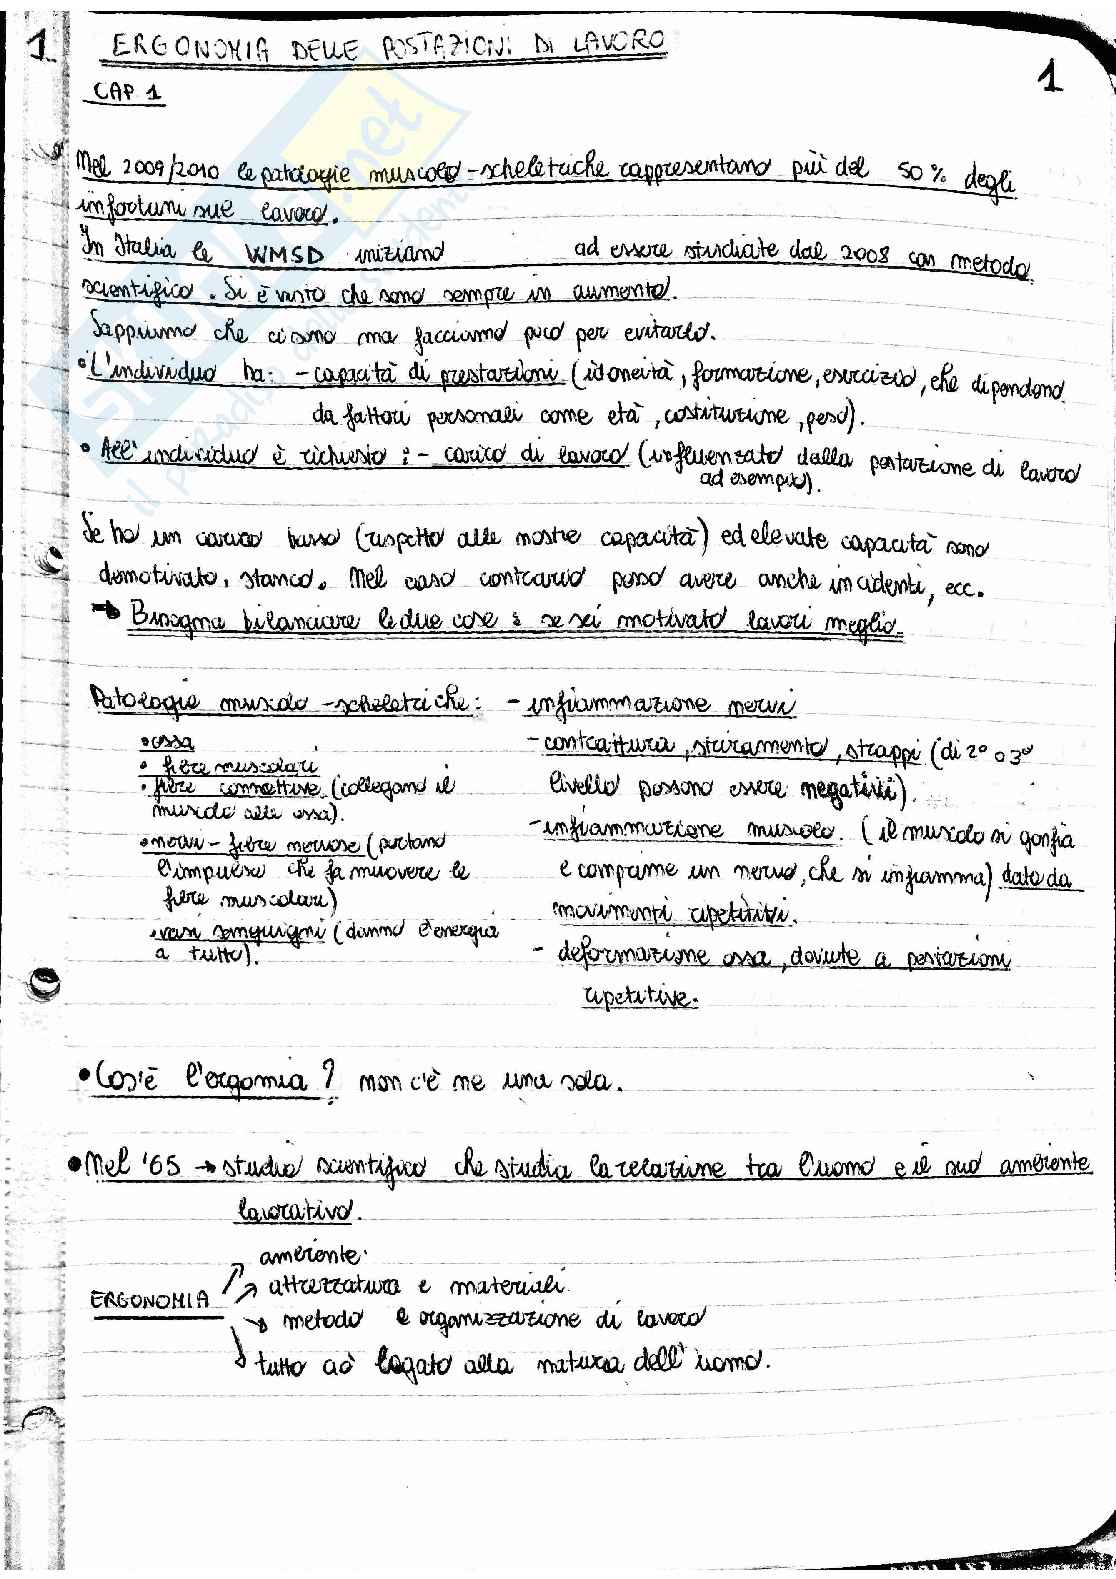 1
ERGONOMIA DELLE POSTAZIONI DI LAVORO
1
CAP 1
Nel 2009/2010 le patologie muscolo-scheletriche rappresentano più del 50% degli
infortuni sul lavoro.
In Italia le WMSD iniziano ad essere studiate dal 2008 con metodo
scientifico. Si è visto che sono sempre in aumento.
Sappiamo che ci sono ma facciamo poco per evitarlo.
• L'individuo ha: - capacità di prestazioni (idoneità, formazione, esercizio, che dipendono
da fattori personali come età, costituzione, peso).
• All'individuo è richiesto: - carico di lavoro (influenzato dalla postazione di lavoro
ad esempio).
Se ho un carico basso (rispetto alle nostre capacità) ed elevate capacità sono
demotivato, stanco. Nel caso contrario posso avere anche incidenti, ecc.
→ Bisogna bilanciare le due cose: se sei motivato lavori meglio.
Patologie muscolo-scheletriche: - infiammazione nervi
• ossa
- contrattura, stiramento, strappi (di 2° o 3°
• fibre muscolari
• fibre connettive (collegano il
livello possono essere negativi).
muscolo alle ossa).
- infiammazione muscolo. (il muscolo si gonfia
• nervi - fibre nervose (portano
l'impulso che fa muovere le
e comprime un nervo, che si infiamma) dato da
fibre muscolari)
movimenti ripetitivi.
• vasi sanguigni (danno l'energia
a tutto).
- deformazione ossa, dovute a postazioni
ripetitive.
• Cos'è l'ergomia? non c'è ne una sola.
• Nel '65 → studio scientifico che studia la relazione tra l'uomo e il suo ambiente
lavorativo.
ambiente
attrezzatura e materiali
ERGONOMIA
metodo e organizzazione di lavoro
tutto ciò legato alla natura dell'uomo.